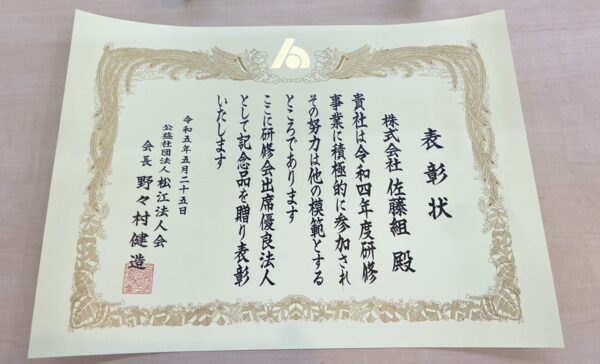 表彰状
株式会社 佐藤組 殿
貴社は令和四年度研修
事業に積極的に参加され
その努力は他の模範とする
ところであります
ここに研修会出席優良法人
として記念品を贈り表彰
いたします
令和五年五月二十五日
公益社団法人 松江法人会
会長 野々村健造